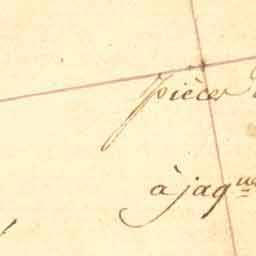 pièces
à jaq.